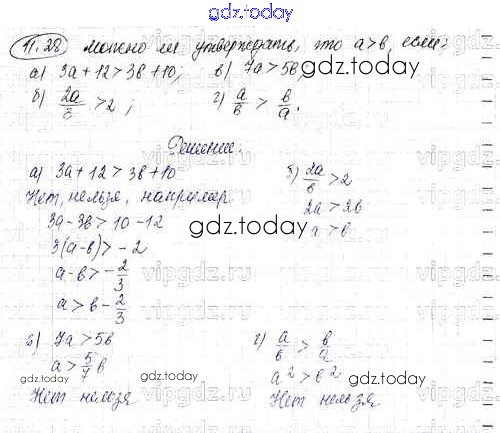 gdz.today
11.28 Можно ли утверждать, что a>b, если:
а) 3a+12>3b+10; в) 7a>5b,
б) 2a/b >2; г) a/b > b/a.
Решение.
а) 3a+12>3b+10
Нет, нельзя, например
3a-3b>10-12
3(a-b)>-2
a-b>-2/3
a>b-2/3
б) 2a/b >2
2a>2b
a>b
в) 7a>5b
a>5/7 b
Нет нельзя
г) a/b > b/a
a²>b²
Нет нельзя
gdz.today
gdz.today
gdz.today
vipgdz.ru